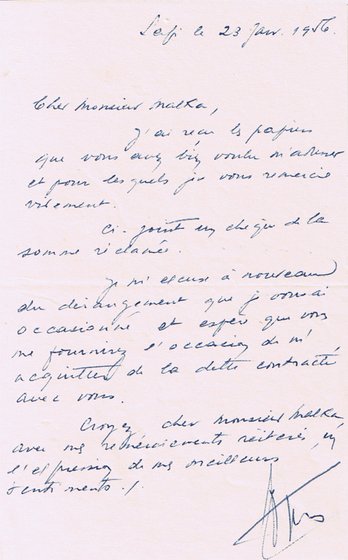 Safi le 23 Janv. 1956.
Cher Monsieur Malka,
J'ai reçu les papiers
que vous avez bien voulu m'adresser
et pour lesquels je vous remercie
vivement.
Ci-joint un chèque de la
somme réclamée.
Je m'excuse à nouveau
du dérangement que je vous ai
occasionné et espère que vous
me fournirez l'occasion de m'
acquitter de la dette contractée
avec vous.
Croyez, cher Monsieur Malka,
avec mes remerciements réitérés, en
l'expression de mes meilleurs
sentiments ./.